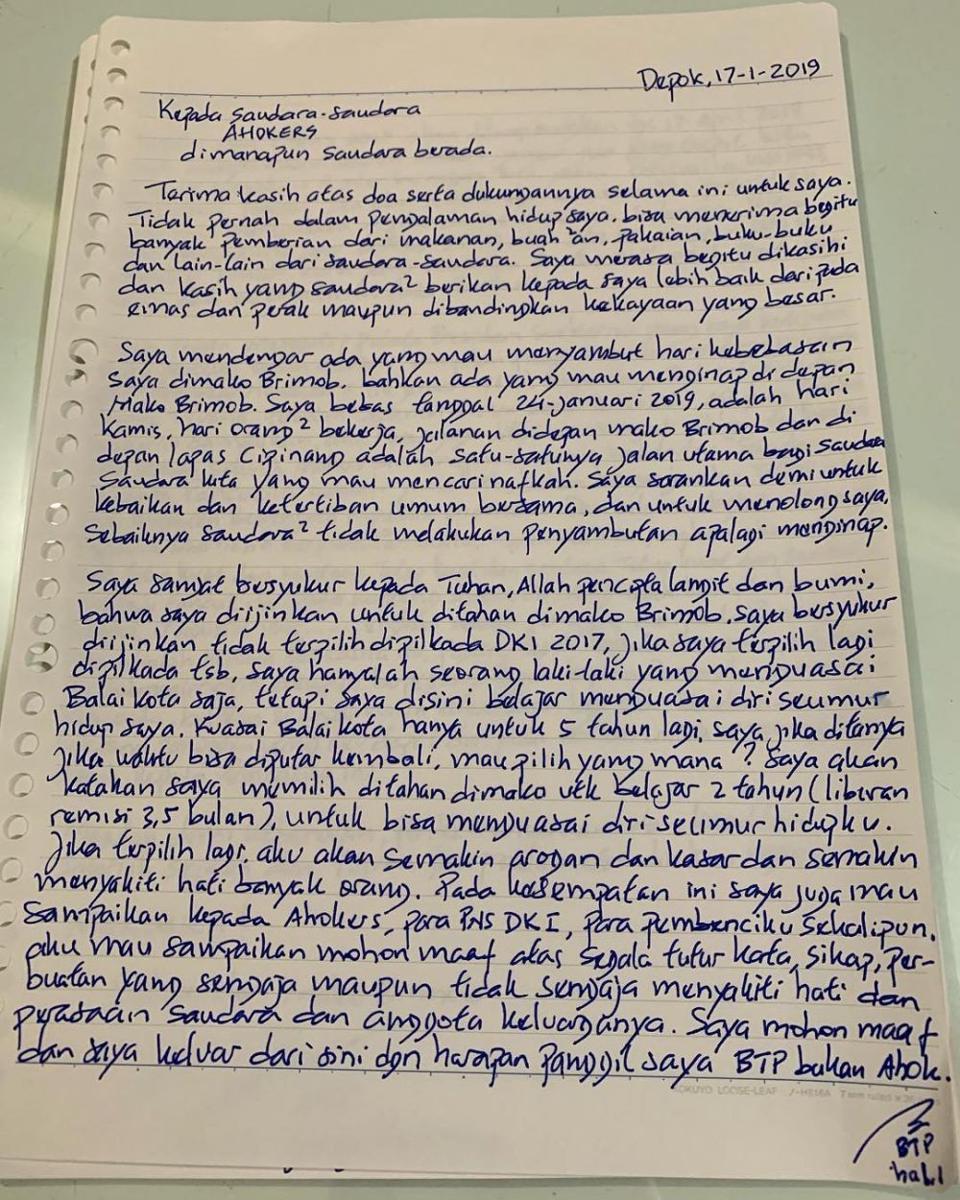 Depok, 17-1-2019
Kepada saudara-saudara
AHOKERS
dimanapun saudara berada.
Tarima kasih atas doa serta dukungannya selama ini untuk saya.
Tidak pernah dalam pengalaman hidup saya. bisa menerima begitu
banyak pemberian dari makanan, buah ²an, pakaian, buku-buku
dan lain-lain dari saudara-saudara. Saya merasa begitu dikasihi
dan kasih yang saudara² berikan kepada saya lebih baik daripada
emas dan perak maupun dibandingkan kekayaan yang besar.
Saya mendengar ada yang mau menyambut hari kebebasan
saya dimako Brimob. bahkan ada yang mau menginap di depan
Mako Brimob. Saya bebas tanggal 24-januari 2019, adalah hari
Kamis, hari orang² bekerja, jalanan didepan mako Brimob dan di
depan lapas Cipinang adalah satu-satunya jalan utama bagi saudara
saudara kita yang mau mencari nafkah. Saya sarankan demi untuk
kebaikan dan ketertiban umum bersama, dan untuk menolong saya,
sebaiknya saudara² tidak melakukan penyambutan apalagi menginap.
Saya sangat bersyukur kepada Tuhan, Allah pencipta langit dan bumi,
bahwa saya diijinkan untuk ditahan dimako Brimob. saya bersyukur
diijinkan tidak terpilih dipilkada DKI 2017, jika saya terpilih lagi
dipilkada tsb, saya hanyalah seorang laki-laki yang menguasai
Balai kota saja, tetapi saya disini belajar menguasai diri seumur
hidup saya. Kuasai Balai kota hanya untuk 5 tahun lagi. saya jika ditanya
jika waktu bisa diputar kembali, mau pilih yang mana? saya akan
katakan saya memilih ditahan dimako utk belajar 2 tahun (liburan
remisi 3,5 bulan), untuk bisa menguasai diri seumur hidupku.
Jika terpilih lagi, aku akan semakin arogan dan kasar dan semakin
menyakiti hati banyak orang. Pada kesempatan ini saya juga mau
sampaikan kepada Ahokers, para PNS DKI, para pembenciku sekalipun,
aku mau sampaikan mohon maaf atas segala tutur kata, sikap, per-
buatan yang sengaja maupun tidak sengaja menyakiti hati dan
perasaan saudara dan anggota keluarganya. Saya mohon maaf
dan saya keluar dari sini dgn harapan panggil saya BTP bukan Ahok.
KOKUYO LOOSE-LEAF
BTP
hal.1